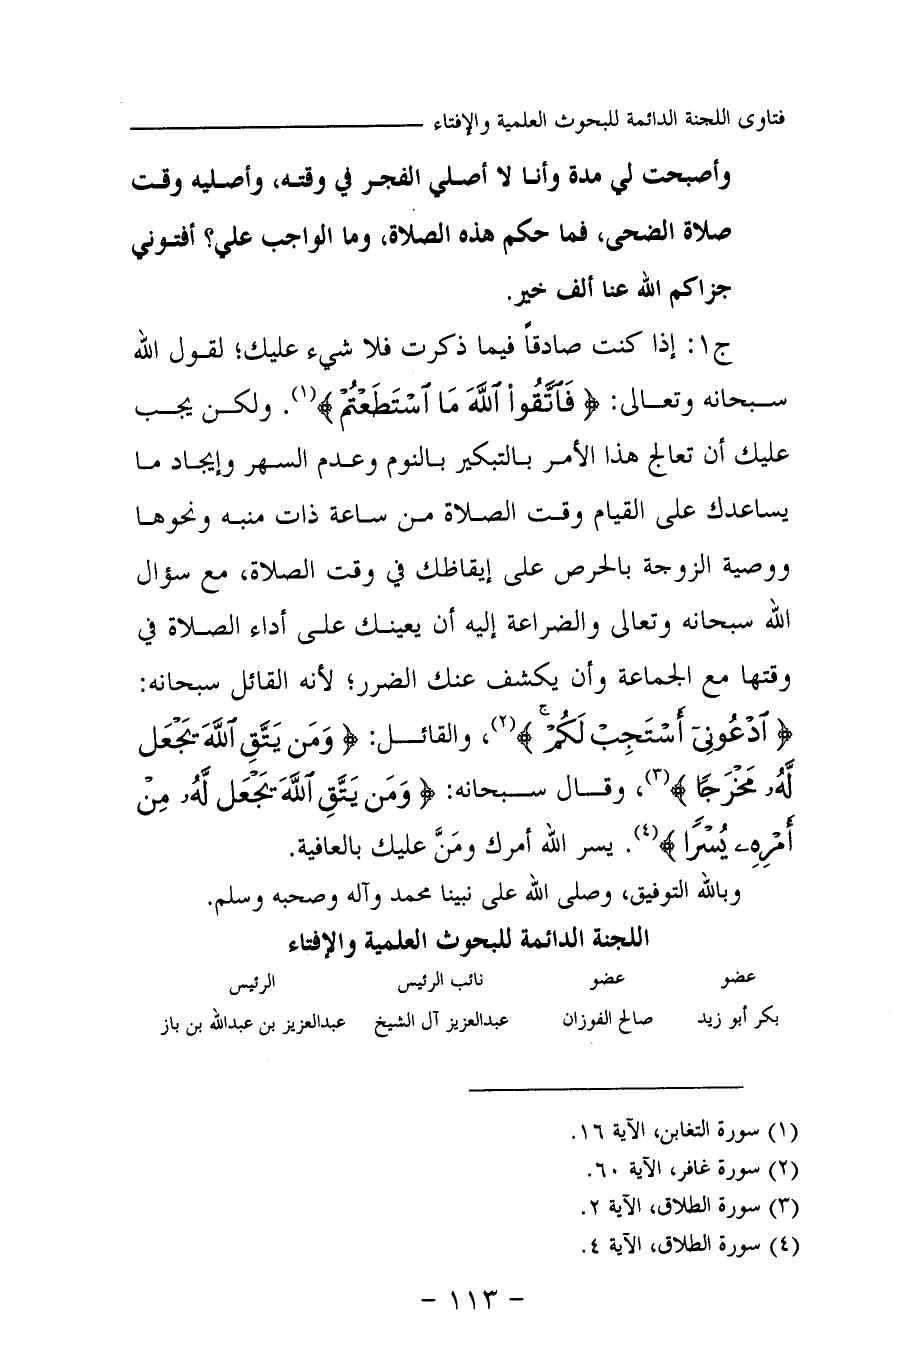 فتاوى اللجنة الدائمة للبحوث العلمية والإفتاء
وأصبحت لي مدة وأنا لا أصلي الفجر في وقته، وأصليه وقت
صلاة الضحى، فما حكم هذه الصلاة، وما الواجب علي؟ أفتوني
جزاكم الله عنا ألف خير.
ج١: إذا كنت صادقاً فيما ذكرت فلا شيء عليك؛ لقول الله
سبحانه وتعالى: ﴿ فَٱتَّقُوا۟ ٱللَّهَ مَا ٱسْتَطَعْتُمْ ﴾(١). ولكن يجب
عليك أن تعالج هذا الأمر بالتبكير بالنوم وعدم السهر وإيجاد ما
يساعدك على القيام وقت الصلاة من ساعة ذات منبه ونحوها
ووصية الزوجة بالحرص على إيقاظك في وقت الصلاة، مع سؤال
الله سبحانه وتعالى والضراعة إليه أن يعينك على أداء الصلاة في
وقتها مع الجماعة وأن يكشف عنك الضرر؛ لأنه القائل سبحانه:
﴿ ٱدْعُونِىٓ أَسْتَجِبْ لَكُمْ ۚ ﴾(٢)، والقائل: ﴿ وَمَن يَتَّقِ ٱللَّهَ يَجْعَل
لَّهُۥ مَخْرَجًا ﴾(٣)، وقال سبحانه: ﴿ وَمَن يَتَّقِ ٱللَّهَ يَجْعَل لَّهُۥ مِنْ
أَمْرِهِۦ يُسْرًا ﴾(٤). يسر الله أمرك ومَنَّ عليك بالعافية.
وبالله التوفيق، وصلى الله على نبينا محمد وآله وصحبه وسلم.
اللجنة الدائمة للبحوث العلمية والإفتاء
عضو عضو نائب الرئيس الرئيس
بكر أبو زيد صالح الفوزان عبدالعزيز آل الشيخ عبدالعزيز بن عبدالله بن باز
(١) سورة التغابن، الآية ١٦.
(٢) سورة غافر، الآية ٦٠.
(٣) سورة الطلاق، الآية ٢.
(٤) سورة الطلاق، الآية ٤.
- ١١٣ -